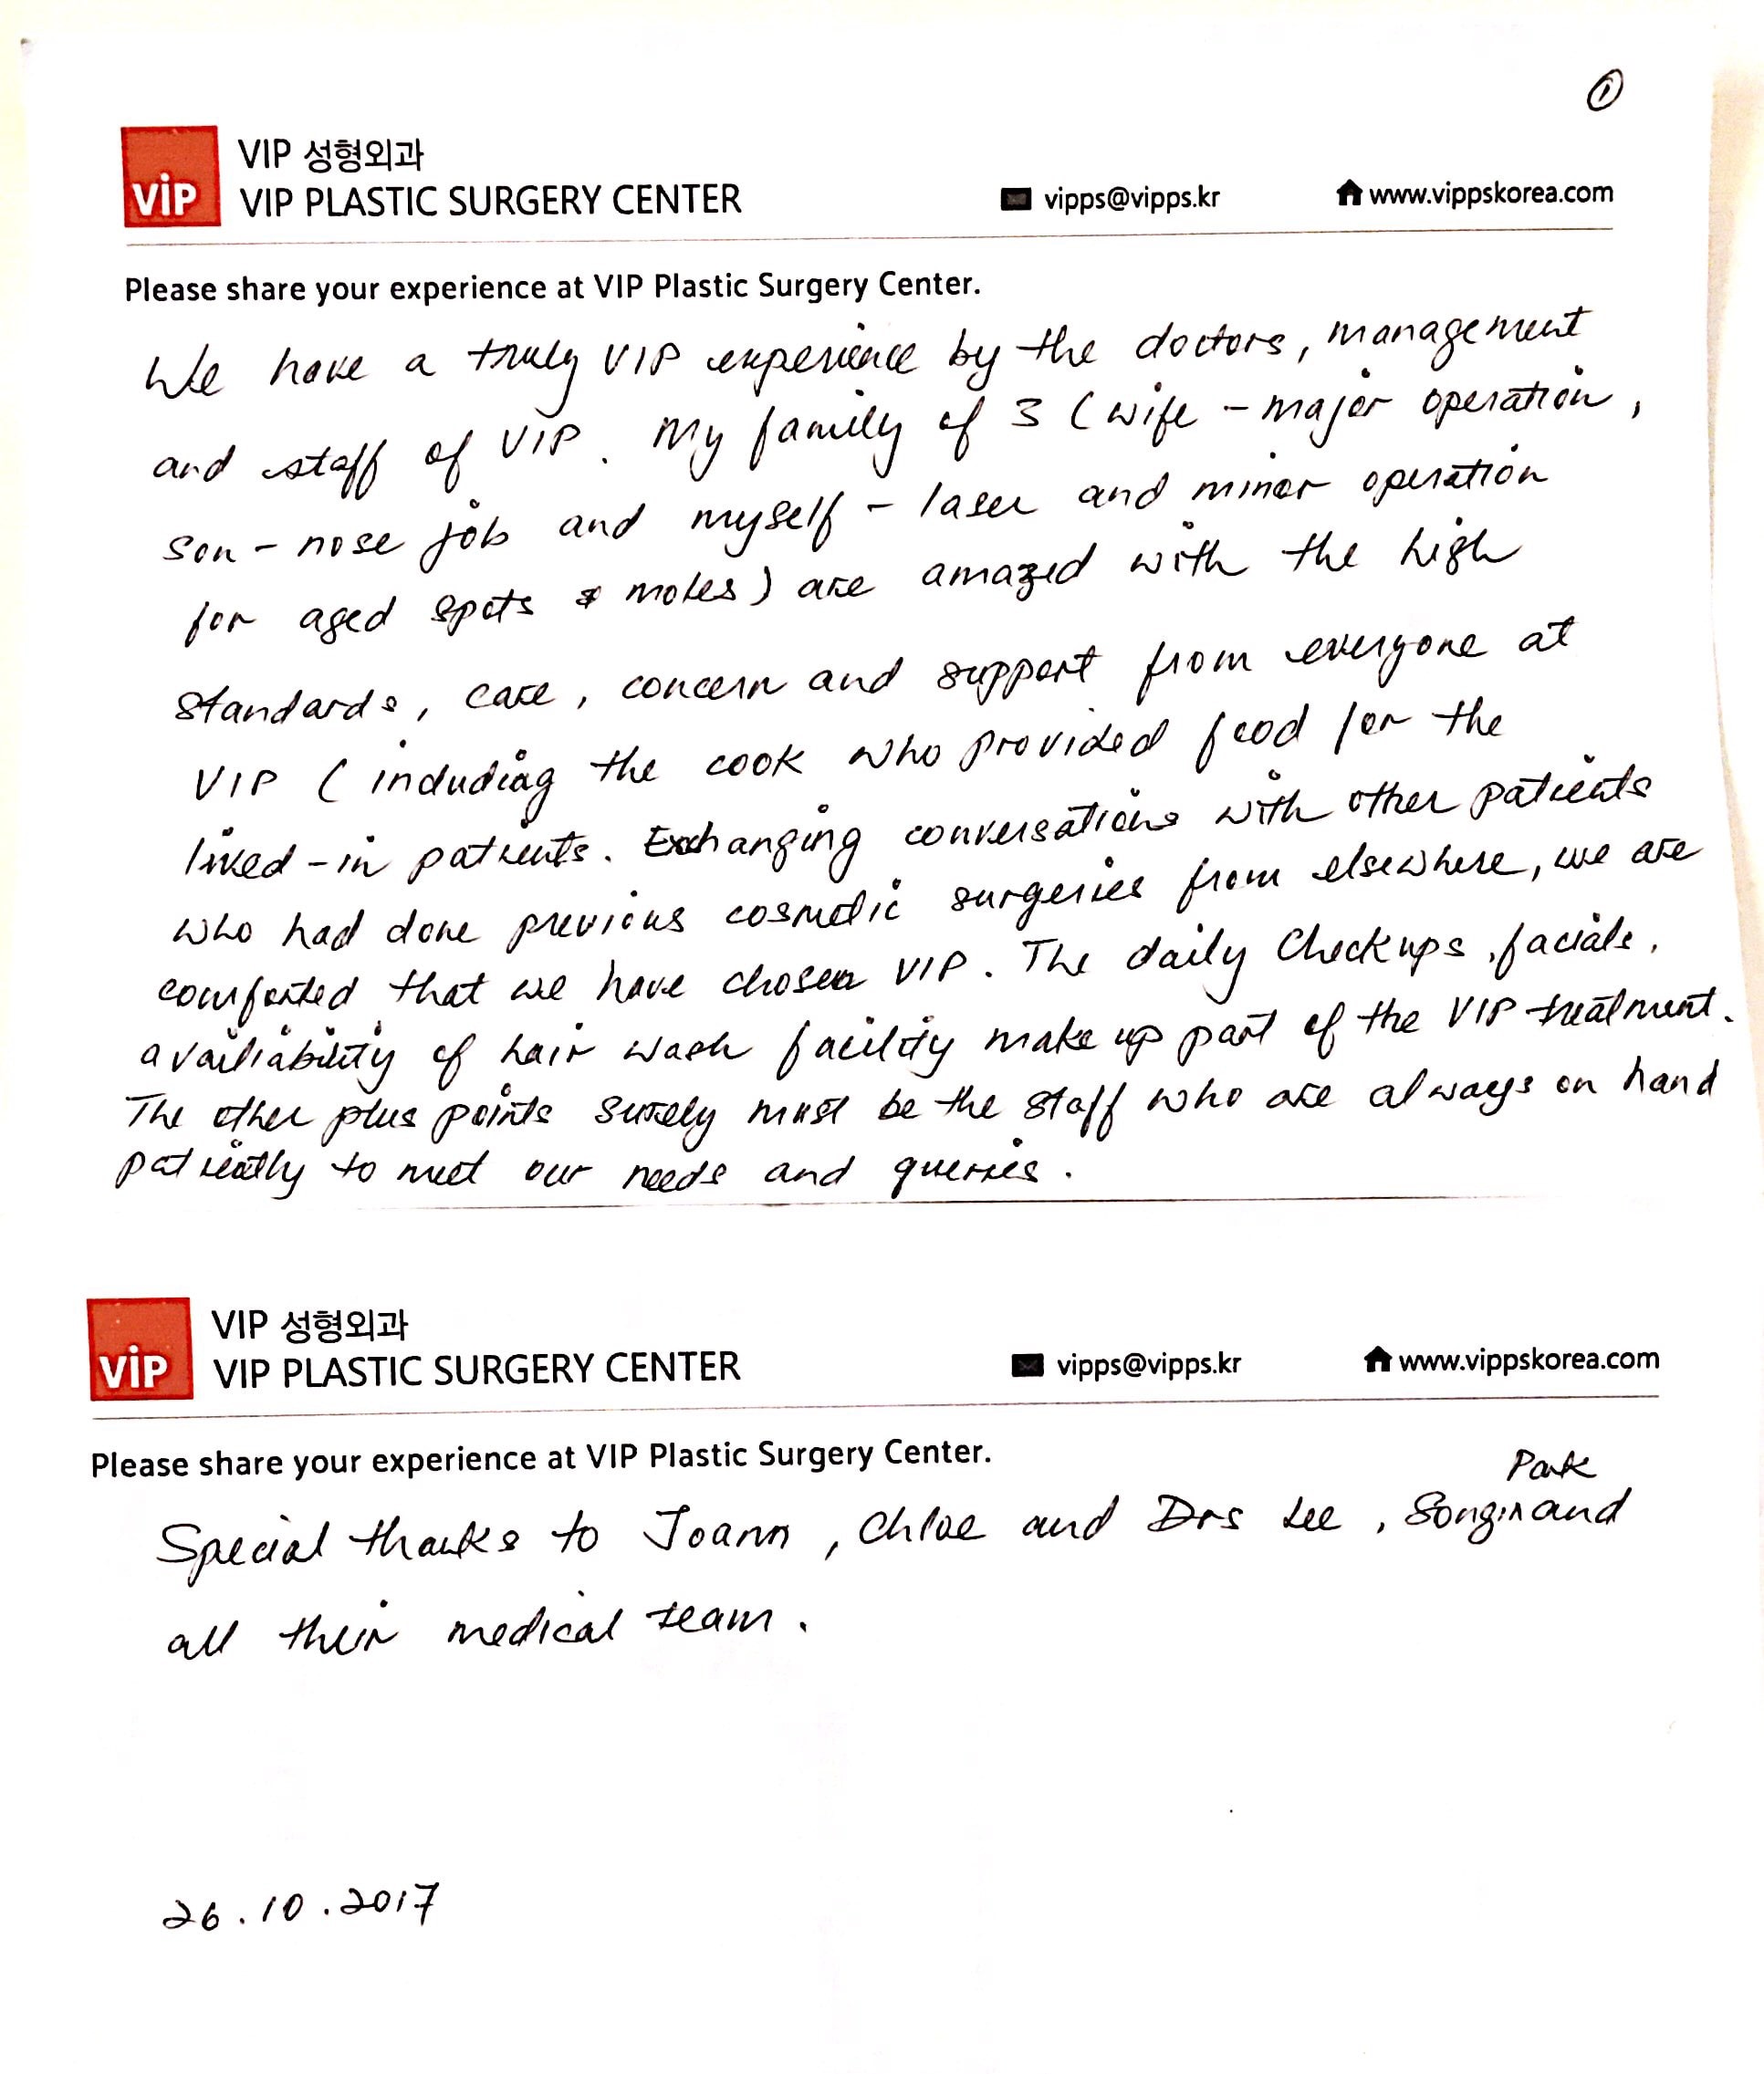 ①
VIP 성형외과
ViP VIP PLASTIC SURGERY CENTER vipps@vipps.kr www.vippskorea.com
Please share your experience at VIP Plastic Surgery Center.
We have a truly VIP experience by the doctors, management
and staff of VIP. My family of 3 (wife - major operation,
son - nose job and myself - laser and minor operation
for aged spots & moles) are amazed with the high
standards, care, concern and support from everyone at
VIP (including the cook who provided food for the
lived-in patients. Exchanging conversations with other patients
who had done previous cosmetic surgeries from elsewhere, we are
comforted that we have chosen VIP. The daily checkups, facials,
availiability of hair wash facility make up part of the VIP treatment.
The other plus points surely must be the staff who are always on hand
patiently to meet our needs and querries.
VIP 성형외과
ViP VIP PLASTIC SURGERY CENTER vipps@vipps.kr www.vippskorea.com
Please share your experience at VIP Plastic Surgery Center.
Park
Special thanks to Joann, Chloe and Drs Lee, Songin and
all their medical team.
26.10.2017